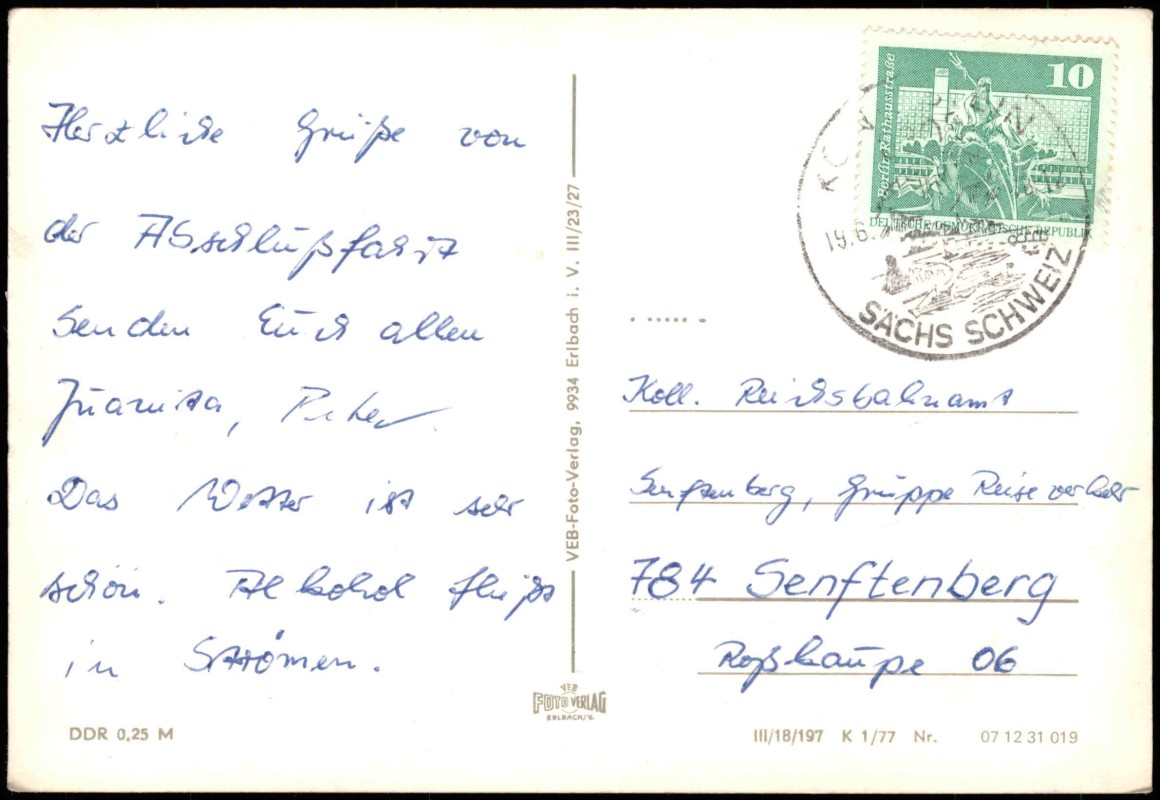 Herzliche Grüße von
der Abschlußfahrt
senden Euch allen
Juanita, Peter.
Das Wetter ist sehr
schön. Alkohol fließt
in Strömen.
DDR 0,25 M
VEB-Foto-Verlag, 9934 Erlbach i. V. III/23/27
VEB
FOTO VERLAG
ERLBACH/V.
10
Berlin, Rathausstraße
DEUTSCHE DEMOKRATISCHE REPUBLIK
19.6.
SÄCHS SCHWEIZ
Koll. Reichsbahnamt
Senftenberg, Gruppe Reiseverkehr
784 Senftenberg
Roßkaupe 06
III/18/197 K 1/77 Nr. 07 12 31 019